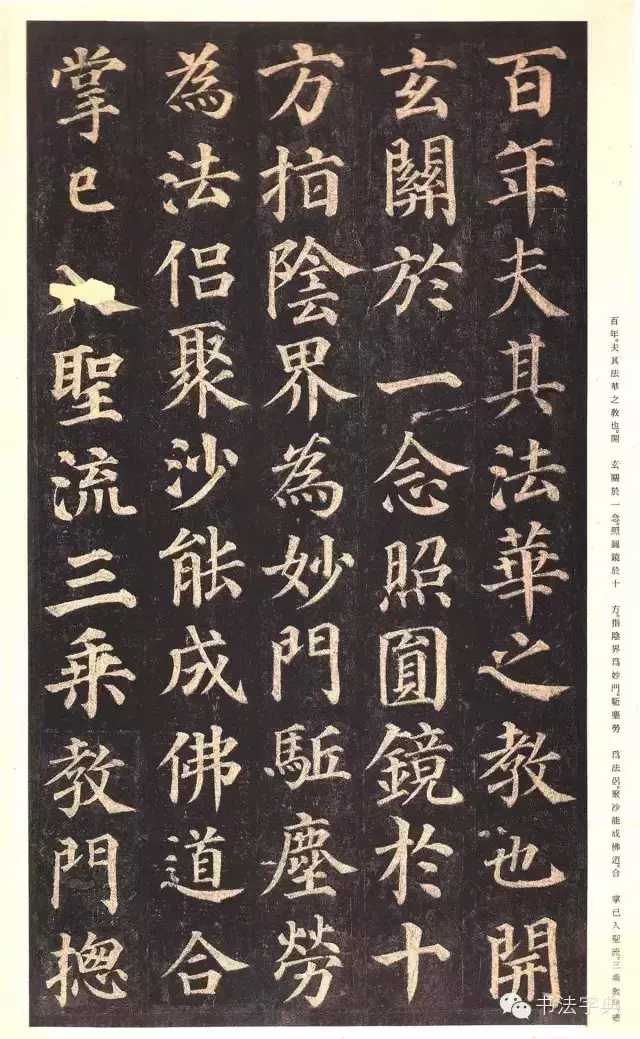 百年夫其法華之教也開
玄關於一念照圓鏡於十
方指陰界為妙門駈塵勞
為法侣聚沙能成佛道合
掌已入聖流三乘教門揔
百年。夫其法華之教也。開　玄關於一念。照圓鏡於十　方。指陰界爲妙門。駈塵勞　爲法侶。聚沙能成佛道。合　掌已入聖流。三乘教門。總
书法字典